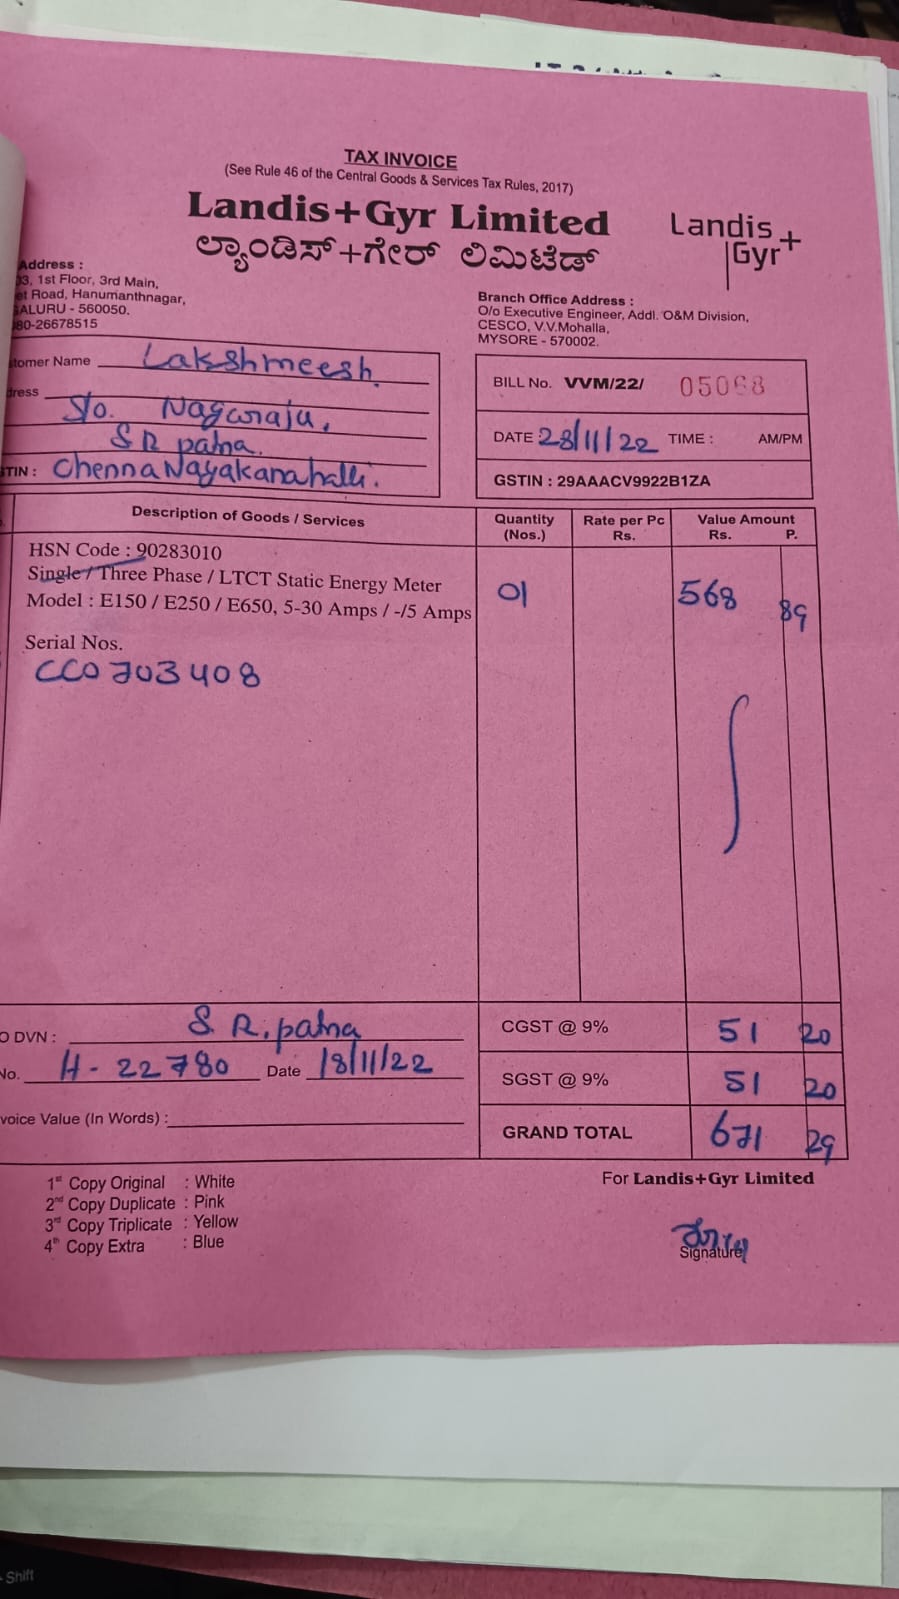 TAX INVOICE
(See Rule 46 of the Central Goods & Services Tax Rules, 2017)
Landis+Gyr Limited
ಲ್ಯಾಂಡಿಸ್+ಗೇರ್ ಲಿಮಿಟೆಡ್
Landis
Gyr+
Address :
03, 1st Floor, 3rd Main,
et Road, Hanumanthnagar,
GALURU - 560050.
080-26678515
Branch Office Address :
O/o Executive Engineer, Addl. O&M Division,
CESCO, V.V.Mohalla,
MYSORE - 570002.
tomer Name Lakshmeesh.
dress S/o. Nagaraju,
S R patna.
STIN : Chenna Nayakanahalli.
BILL No. VVM/22/ 05068
DATE 28/11/22 TIME : AM/PM
GSTIN : 29AAACV9922B1ZA
Description of Goods / Services
Quantity (Nos.)
Rate per Pc Rs.
Value Amount Rs. P.
HSN Code : 90283010
Single / Three Phase / LTCT Static Energy Meter
Model : E150 / E250 / E650, 5-30 Amps / -/5 Amps
01 568 89
Serial Nos.
CC0703408
O DVN : S. R. patna
CGST @ 9% 51 20
No. H - 22780 Date 18/11/22
SGST @ 9% 51 20
voice Value (In Words) :
GRAND TOTAL 671 29
1st Copy Original : White
2nd Copy Duplicate : Pink
3rd Copy Triplicate : Yellow
4th Copy Extra : Blue
For Landis+Gyr Limited
Signature
Shift